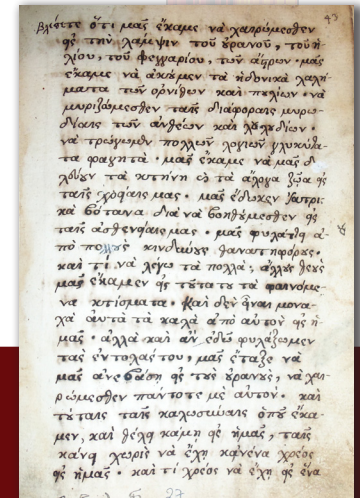 43
βλέπετε ὅτι μᾶς ἔκαμε νὰ χαιρώμεσθεν
εἰς τὴν λάμψιν τοῦ οὐρανοῦ, τοῦ ἡ-
λίου, τοῦ φεγγαρίου, τῶν ἄστρων· μᾶς
ἔκαμε νὰ ἀκούμεν τὰ ἡδονικὰ λαλή-
ματα τῶν ὀρνίθων καὶ πουλίων· νὰ
μυριζώμεσθεν ταῖς διάφοραις μυρω-
δίαις τῶν ἀνθέων καὶ λουλουδίων·
νὰ τρώγωμεν πολλῶν λογιῶν γλυκύτα-
τα φαγητά· μᾶς ἔκαμε νὰ μᾶς δου-
λεύουν τὰ κτήνη καὶ τὰ ἄλογα ζῶα εἰς
ταῖς χρείαις μας· μᾶς ἔδωκεν ἰατρι-
κὰ βότανα διὰ νὰ βοηθούμεσθεν εἰς
ταῖς ἀσθενείαις μας· μᾶς φυλάττει ἀ-
πὸ πολλοὺς κινδύνους θανατηφόρους·
καὶ τί νὰ λέγω τὰ πολλά,
μᾶς ἔκαμεν εἰς τοῦτα τὰ φαινόμε-
να κτίσματα· Καὶ δὲν εἶναι μονα-
χὰ αὐτὰ τὰ καλὰ ἀπὸ αὐτὸν εἰς ἡ-
μᾶς· ἀλλὰ καὶ ἂν ἐδῶ φυλάξωμεν
τὰς ἐντολάς του, μᾶς ἔταξε νὰ
μᾶς ἀνεβάσῃ εἰς τοὺς οὐρανούς, νὰ χαι-
ρώμεσθεν πάντοτε μὲ αὐτόν· καὶ
τούταις ταῖς καλωσύναις ὁποῦ ἔκα-
μεν, καὶ θέλει κάμῃ εἰς ἡμᾶς, ταῖς
κάνει χωρὶς νὰ ἔχῃ κανένα χρέος
εἰς ἡμᾶς· καὶ τί χρέος νὰ ἔχῃ εἰς ἕνα
27